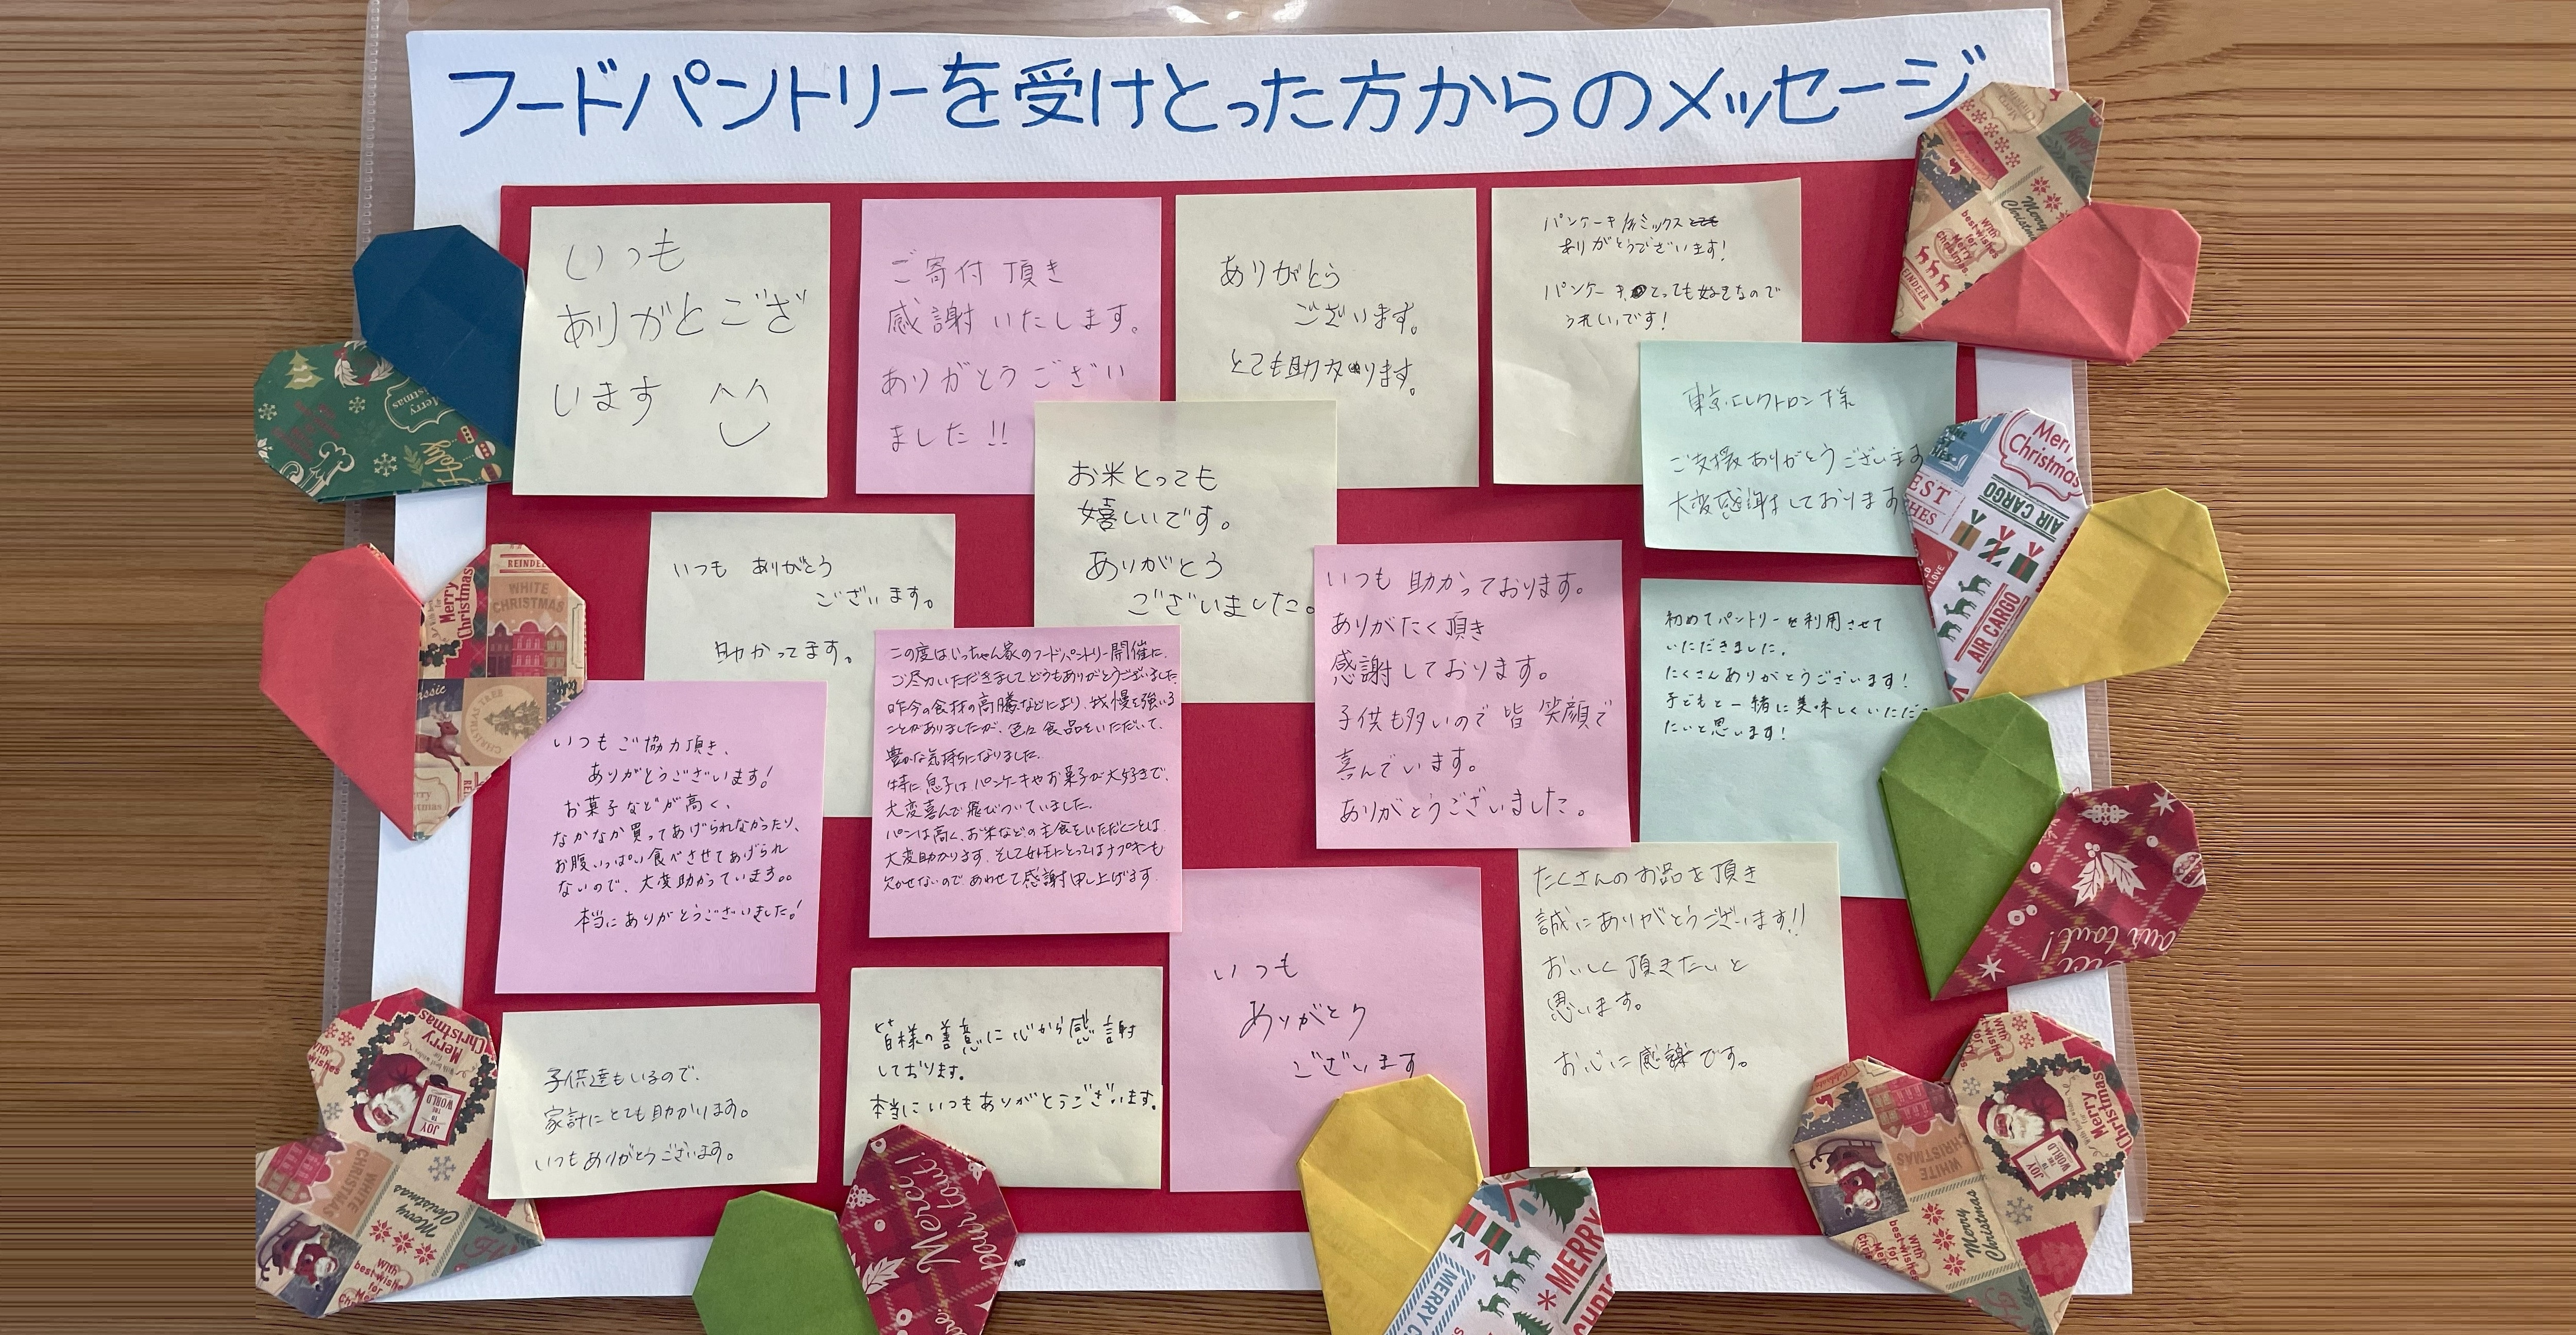 フードパントリーを受けとった方からのメッセージ
いつも
ありがとござ
います
ご寄付頂き
感謝いたします。
ありがとうござい
ました!!
ありがとう
ございます。
とても助かります。
パンケーキミックス
ありがとうございます!
パンケーキとっても好きなので
うれしいです!
東京エレクトロン様
ご支援ありがとうございます
大変感謝しております
いつも ありがとう
ございます。
助かってます。
お米とっても
嬉しいです。
ありがとう
ございました。
いつも助かっております。
ありがたく頂き
感謝しております。
子供も多いので皆笑顔で
喜んでいます。
ありがとうございました。
初めてパントリーを利用させて
いただきました。
たくさんありがとうございます!
子どもと一緒に美味しくいただき
たいと思います!
いつもご協力頂き、
ありがとうございます!
お菓子などが高く、
なかなか買ってあげられなかったり、
お腹いっぱい食べさせてあげられ
ないので、大変助かっています。。
本当にありがとうございました!
この度はじっちゃん家のフードパントリー開催に、
ご尽力いただきましてどうもありがとうございました
昨今の食材の高騰などにより、我慢を強いる
ことがありましたが、色々食品をいただいて、
豊かな気持ちになりました。
特に息子はパンケーキやお菓子が大好きで、
大変喜んで飛びついていました。
パンは高く、お米などの主食をいただくことは
大変助かります。そして女性にとってはナプキンも
欠かせないので、あわせて感謝申し上げます。
たくさんのお品を頂き
誠にありがとうございます!!
おいしく頂きたいと
思います。
お心に感謝です。
子供達もいるので、
家計にとても助かります。
いつもありがとうございます。
皆様の善意に心から感謝
しております。
本当にいつもありがとうございます。
いつも
ありがとう
ございます
Merry
Christmas
AIR CARGO
AIR CARGO
REINDEER
WHITE
CHRISTMAS
Merry
Christmas
JOY
TO
THE
WORLD
Merci!
MERRY